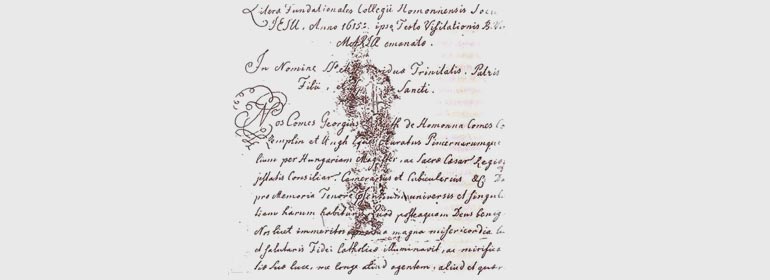 Literæ Fundationales Collegii Homonnensis Soc
JESU. Anno 1615. ipso Festo Visitationis B. V
MARIÆ emanato.
In Nomine Individuæ Trinitatis. Patris
Filii, et Sancti.
Nos Comes Georgius de Homonna Comes
Zemplin et Ungh Eques auratus Pincernarumque
lium per Hungariam Magister, ac Sacræ Cæsar Regiæ
jestatis Consiliar. Camerarius et Cubicularius &c
pro Memoria Tenore universis et singul
tiam harum habituris quod posteaquam Deus benig
Nos licet immeritos magna misericordia
et salutaris Fidei Catholicæ illuminavit, ac mirifica
tis suæ luce, nec longe aliud agentem, aliud et quer